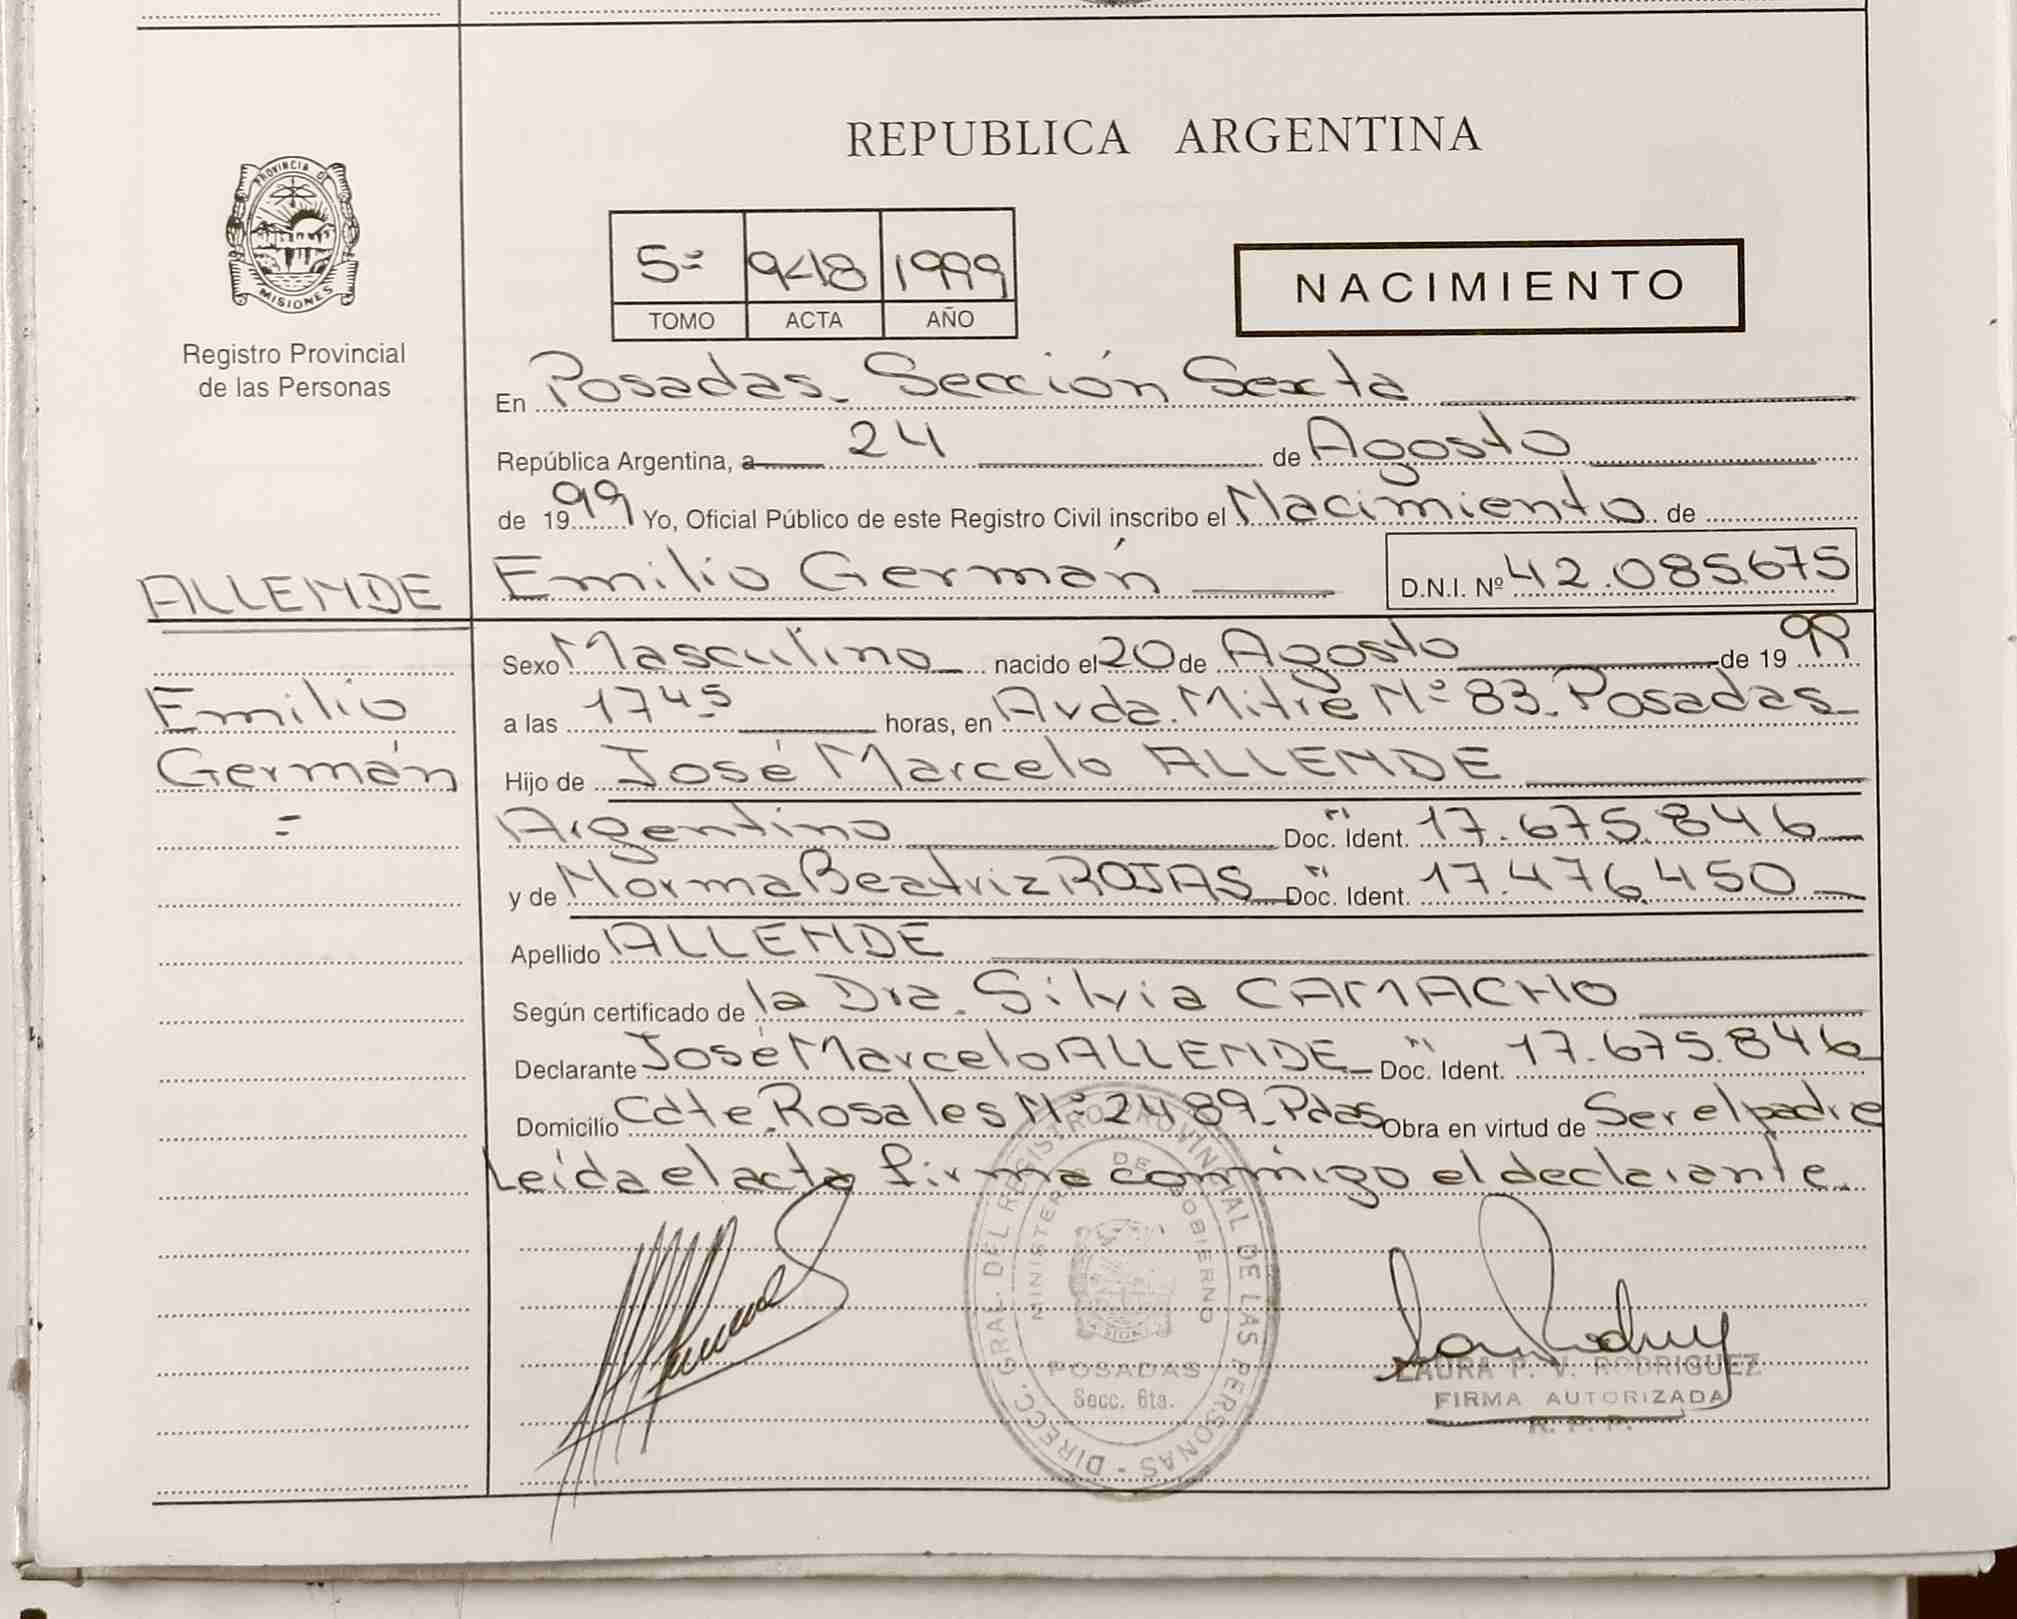 REPUBLICA ARGENTINA
PROVINCIA DE
MISIONES
Registro Provincial
de las Personas
5º 948 1999
TOMO ACTA AÑO
NACIMIENTO
En Posadas - Sección Sexta
República Argentina, a 24 de Agosto
de 1999 Yo, Oficial Público de este Registro Civil inscribo el Nacimiento de
ALLENDE Emilio Germán D.N.I. Nº 42.085.675
Sexo Masculino nacido el 20 de Agosto de 1999
Emilio
a las 17 45 horas, en Avda. Mitre Nº 83 - Posadas
Germán
Hijo de José Marcelo ALLENDE
Argentino Doc. Ident. 17.675.846
y de Norma Beatriz ROJAS Doc. Ident. 17.476.450
Apellido ALLENDE
Según certificado de la Dra. Silvia CAMACHO
Declarante José Marcelo ALLENDE Doc. Ident. 17.675.846
Domicilio Cdte. Rosales Nº 2489 - Pdas Obra en virtud de Ser el padre
Leída el acta firma conmigo el declarante.
DIRECC. GRAL. DEL REGISTRO PROVINCIAL DE LAS PERSONAS -
MINISTERIO DE GOBIERNO
POSADAS
Secc. 6ta.
LAURA P. V. RODRIGUEZ
FIRMA AUTORIZADA
R. P. P.